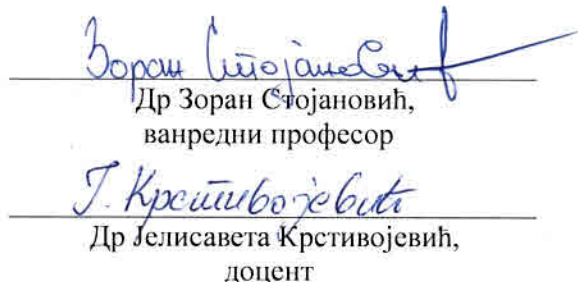 Зоран Стојановић
Др Зоран Стојановић,
ванредни професор
Ј. Крстивојевић
Др Јелисавета Крстивојевић,
доцент